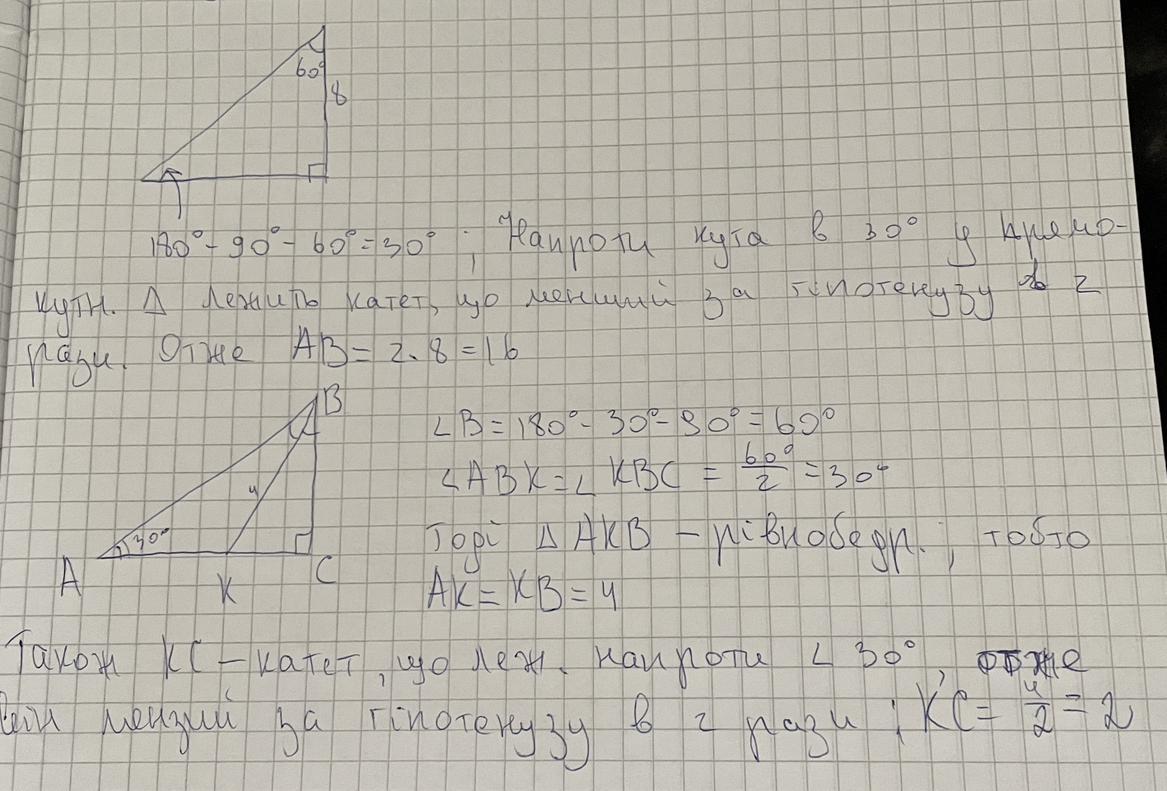 60°
8
180° - 90° - 60° = 30° ; Напроти кута в 30° у прямо-
кутн. Δ лежить катет, що менший за гіпотенузу в 2
рази. Отже AB = 2·8 = 16
B
∠B = 180° - 30° - 90° = 60°
∠ABK = ∠KBC = 60°/2 = 30°
4
30°
Тоді Δ AKB – рівнобедр. ; тобто
A K C
AK = KB = 4
Також KC – катет, що леж. напроти ∠ 30°, отже
він менший за гіпотенузу в 2 рази ; KC = 4/2 = 2